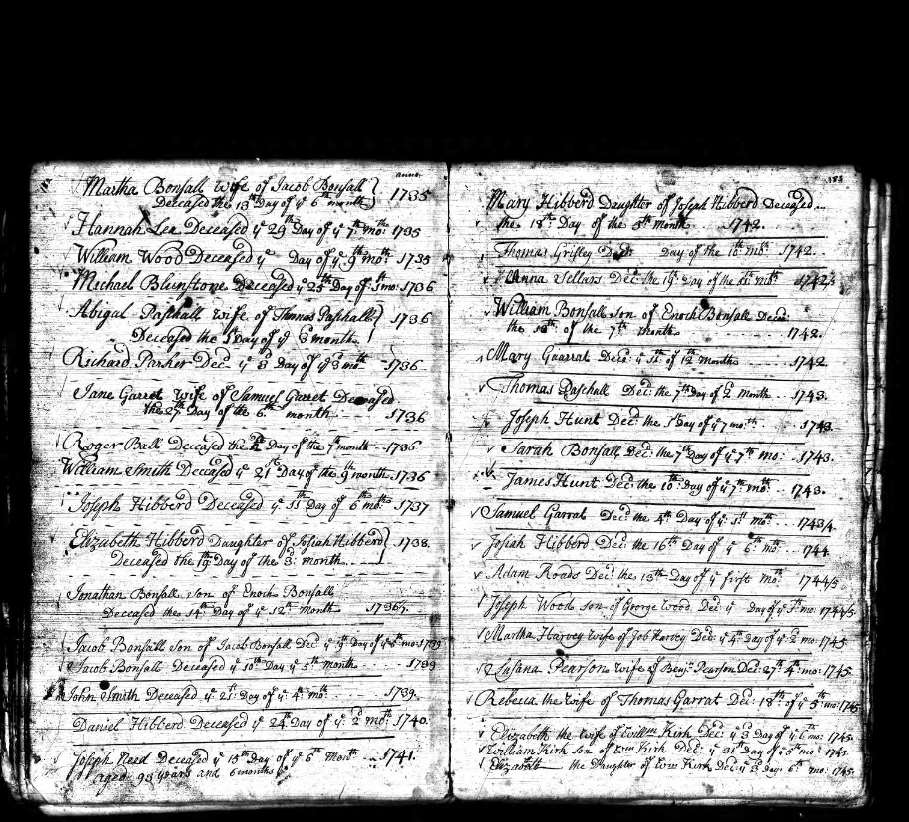 anno.
Martha Bonsall wife of Jacob Bonsall
Deceased the 13th Day of ye 6th month } 1735
Hannah Lea Deceased ye 29th Day of ye 7th mo: 1735
William Wood Deceased ye Day of ye 9th mo: 1735
Michael Blunstone Deceased ye 25th Day of 1st mo: 1736
Abigal Pashall wife of Thomas Pashall
Deceased the 1st Day of ye 6 month } 1736
Richard Parker Dec: ye 3d Day of ye 8th mo: 1736
Jane Garret wife of Samuel Garret Deceased
the 27th Day of the 6th month 1736
Roger Ball Deceased the Day of the 7th month 1736
William Smith Deceased ye 21st Day of the 9th month 1736
Joseph Hibberd Deceased ye 11th Day of 6th mo: 1737
Elizabeth Hibberd Daughter of Josiah Hibberd
Deceased the 19th Day of the 3d: month } 1738.
Jonathan Bonsall son of Enoch Bonsall
Deceased the 14th Day of ye 12th month
Jacob Bonsall son of Jacob Bonsall Decd ye 9th Day of ye mo: 1739
Jacob Bonsall Deceased ye 10th Day ye 5th month 1739
John Smith Deceased ye 21st: Day of ye 4th mo: 1739.
Daniel Hibberd Deceased ye 24th Day of ye: 2d mo: 1740.
Joseph Need Deceased ye 15th Day of ye 6th Month 1741.
aged 93 years and 6 months
183
Mary Hibberd Daughter of Joseph Hibberd Deceased
the 18th: Day of the 5th month 1742.
Thomas Grisley Decd: Day of the 10th mo: 1742.
Anna Sellars Decd: the 19th: Day of the 11th: mo: 1742/3
William Bonsall son of Enoch Bonsall Decd:
the 16th: of the 7th month 1742.
Mary Garrat Decd: ye of 12th month 1742
Thomas Paschall Decd: the 7th Day of 2d Month 1743.
Joseph Hunt Decd: the 1st Day of ye 7 mo: 1743.
Sarah Bonsall Decd: the 7th Day of ye 7th mo: 1743.
James Hunt Decd: the 10th Day of ye 7th mo: 1743.
Samuel Garrat Decd: the 4th Day of ye 1st mo: 1743/4.
Josiah Hibberd Decd: the 16th Day of ye 6th: mo: 1744
Adam Roads Decd: the 13th Day of ye first mo: 1744/5
Joseph Wood son of George Wood Decd ye Day of ye 1st mo: 1744/5
Martha Harvey wife of Job Harvey Decd: ye 4th Day of ye 2d mo: 1745
Susana Pearson wife of Benj: Pearson Decd: 27th 4th: mo: 1745.
Rebecca the wife of Thomas Garrat Decd: 18th: of ye 5th: mo: 1745
Elizabeth the wife of Willm Kirk Decd: ye 3d Day of ye 6th mo: 1745.
William Kirk son of Wm Kirk Decd: ye 31st Day of ye 5th mo: 1745.
Elizabeth the Daughter of Wm Kirk Decd: ye Day: 6th: mo: 1745.